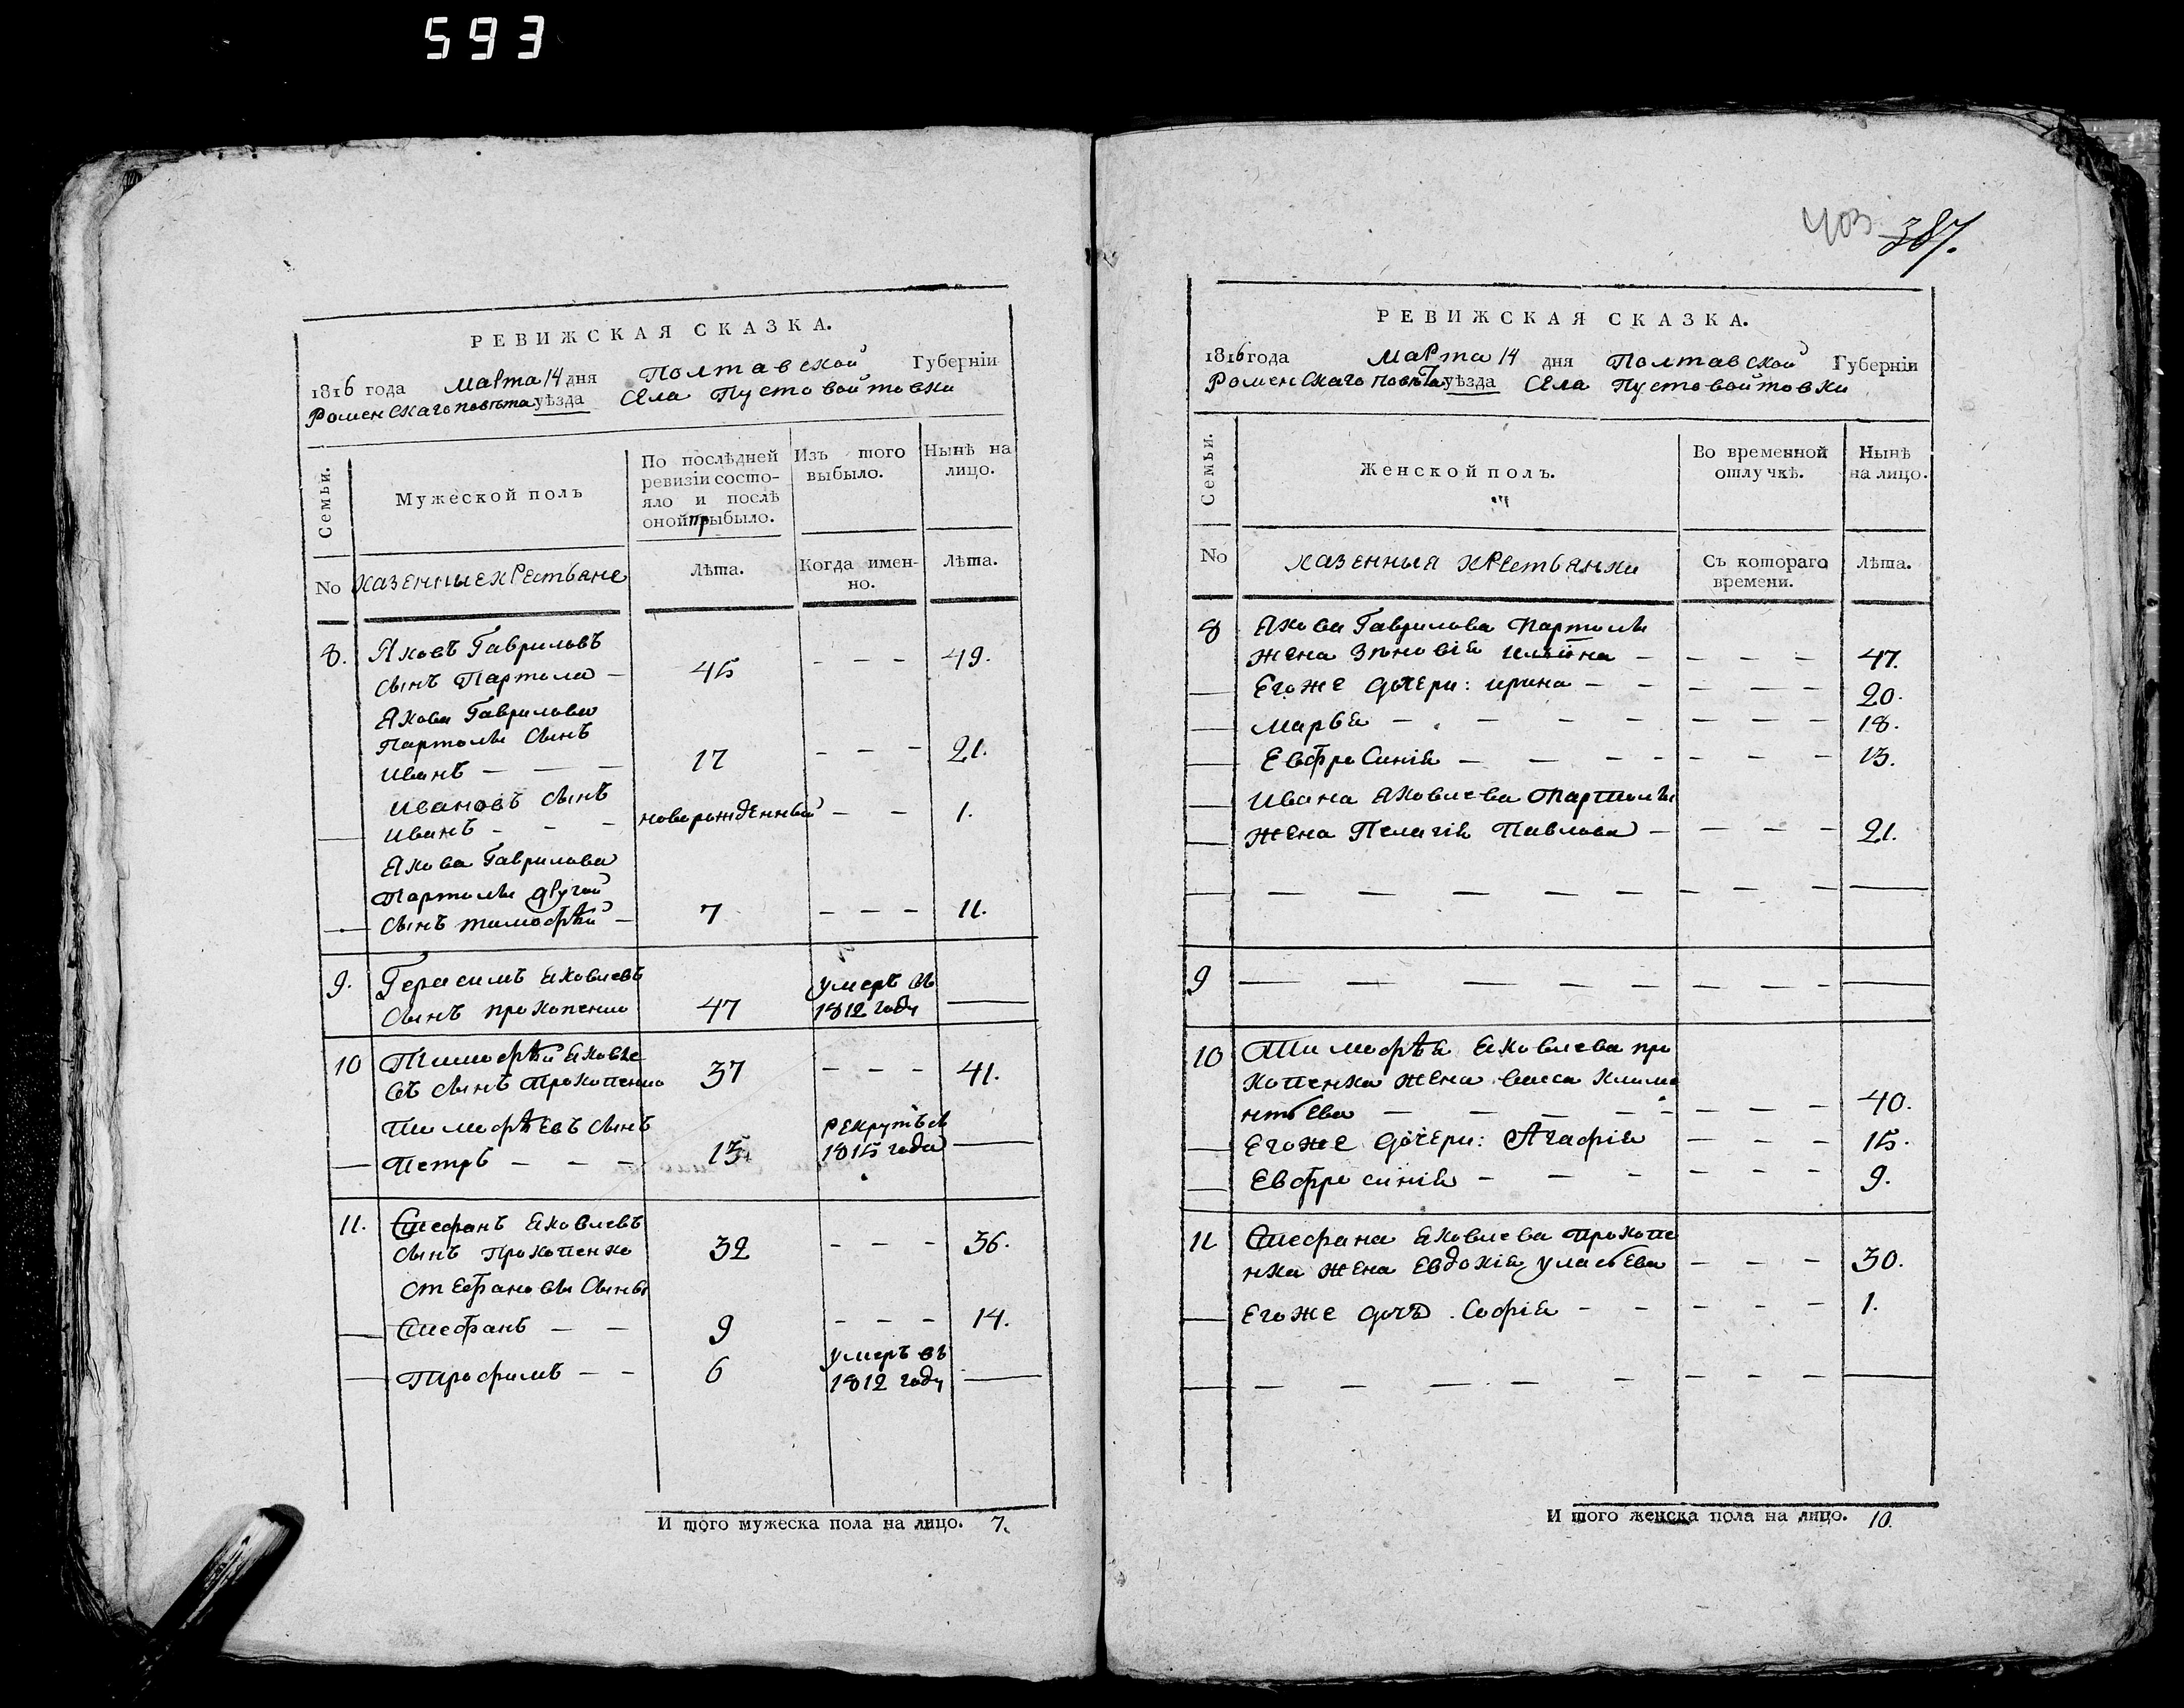 593
РЕВИЖСКАЯ СКАЗКА.
1816 года марта 14 дня Полтавской Губерніи
Роменскаго повѣта уѣзда Села Пустовойтовки
Семьи.
Мужеской полъ
По послѣдней ревизіи состо-
яло и послѣ
оной прибыло.
Изъ того
выбыло.
Нынѣ на
лицо.
No
казенные крестьяне
Лѣта.
Когда имен-
но.
Лѣта.
8. Яковъ Гавриловъ
сынъ Партола — 45 - - - 49.
Якова Гаврилова
Партолы сынъ
Иванъ — — — 17 - - - 21.
Ивановъ сынъ
Иванъ - - - новорожденный - - 1.
Якова Гаврилова
Партолы другой
сынъ тимофѣй — 7 - - - 11.
9. Герасимъ Яковлевъ
сынъ прокопенко 47 умеръ въ
1812 году —
10 Тимофѣй Яковле
въ сынъ Прокопенко 37 - - - 41.
Тимофѣевъ сынъ
Петръ — - - 15 рекрутъ съ
1815 года —
11. Стефанъ Яковлевъ
сынъ Прокопенко 32 - - - 36.
стефановы сыны
Стефанъ — — 9 - - - 14.
Трофимъ — - 6 умеръ въ
1812 году —
И того мужеска пола на лицо. 7.
403 387.
РЕВИЖСКАЯ СКАЗКА.
1816 года марта 14 дня Полтавской Губерніи
Роменскаго повѣта уѣзда Села Пустовойтовки
Семьи.
Женской полъ.
Во временной
отлучкѣ.
Нынѣ
на лицо.
No
казенныя крестьянки
Съ котораго
времени.
Лѣта.
8 Якова Гаврилова Партолы
жена Зѣновія Ильина — - - - 47.
Егоже дочери: ирина - - - - - 20.
Марья — - - - - - - 18.
Евфросинія — - - - - - - 13.
Ивана Яковлева Партолы
жена Пелагія Павлова — - - - 21.
9 — — — — — — — —
10 Тимофѣя Яковлева про
копенка жена васса Климе
нтьева — — — - - - - 40.
Егоже дочери: Агафія - - - 15.
Евфросинія - - - - - - 9.
11 Стефана Яковлева Прокопе
нка жена Евдокія уласьева - - - 30.
Егоже дочь София - - - - - 1.
И того женска пола на лицо. 10.